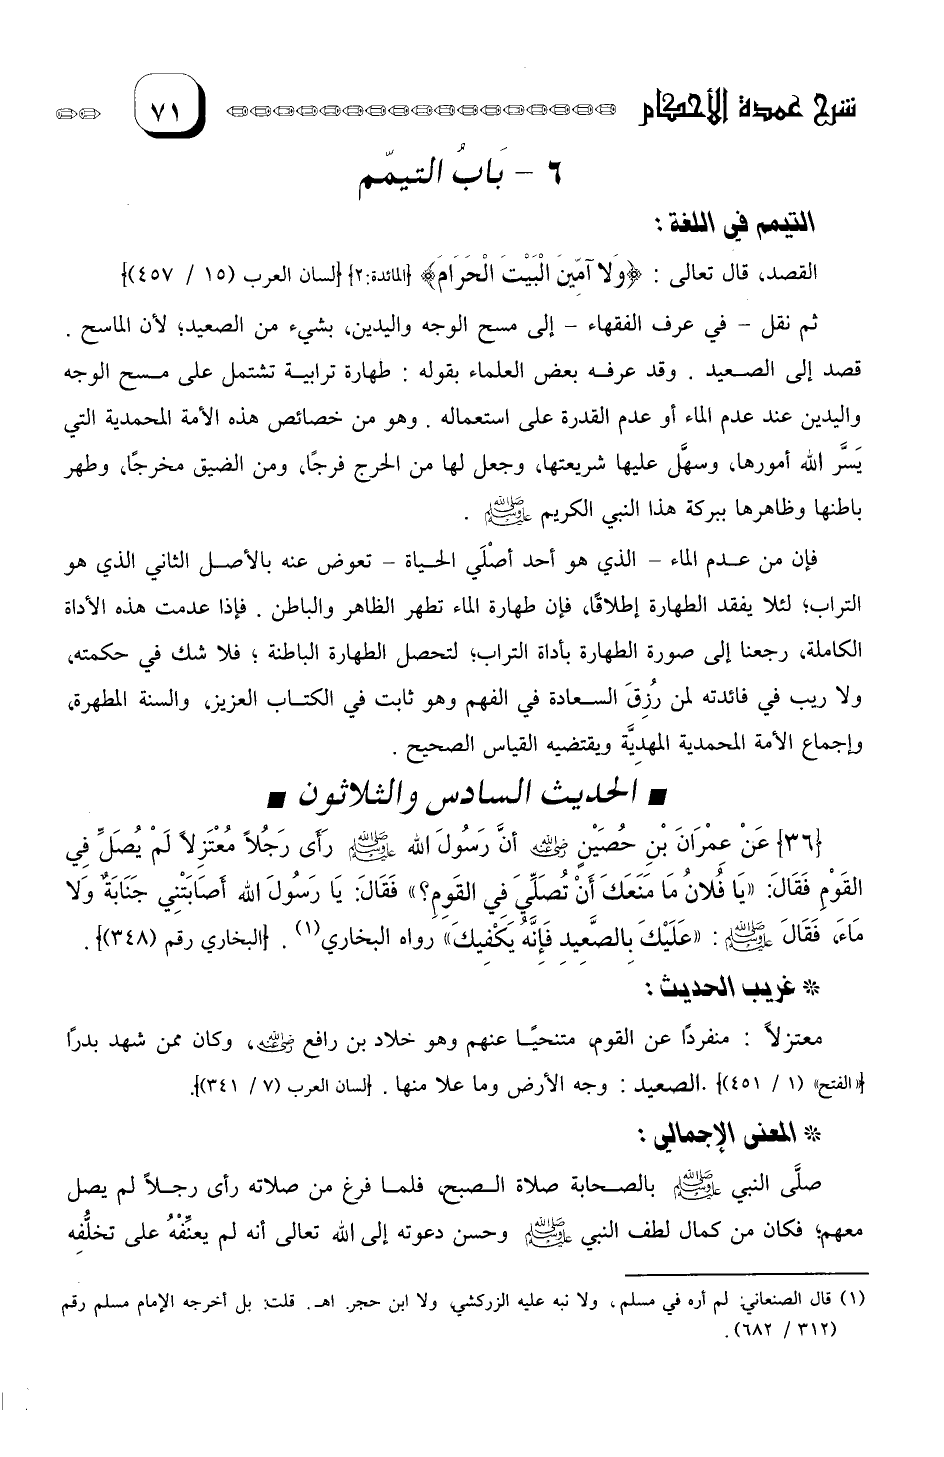 شرح عمدة الأحكام ٧١
٦ - بَابُ التيمّم
التيمم في اللغة :
القصد، قال تعالى : ﴿وَلا آمِّينَ الْبَيْتَ الْحَرَامَ﴾ {المائدة:٢} {لسان العرب (١٥ / ٤٥٧)}
ثم نقل - في عرف الفقهاء - إلى مسح الوجه واليدين، بشيء من الصعيد؛ لأن الماسح .
قصد إلى الصعيد . وقد عرفه بعض العلماء بقوله : طهارة ترابية تشتمل على مسح الوجه
واليدين عند عدم الماء أو عدم القدرة على استعماله . وهو من خصائص هذه الأمة المحمدية التي
يَسَّر الله أمورها، وسهَّل عليها شريعتها، وجعل لها من الحرج فرجًا، ومن الضيق مخرجًا، وطهر
باطنها وظاهرها ببركة هذا النبي الكريم ﷺ .
فإن من عدم الماء - الذي هو أحد أصْلَي الحياة - تعوض عنه بالأصل الثاني الذي هو
التراب؛ لئلا يفقد الطهارة إطلاقًا، فإن طهارة الماء تطهر الظاهر والباطن . فإذا عدمت هذه الأداة
الكاملة، رجعنا إلى صورة الطهارة بأداة التراب؛ لتحصل الطهارة الباطنة ؛ فلا شك في حكمته،
ولا ريب في فائدته لمن رُزِقَ السعادة في الفهم وهو ثابت في الكتاب العزيز، والسنة المطهرة،
وإجماع الأمة المحمدية المهديَّة ويقتضيه القياس الصحيح .
■ الحديث السادس والثلاثون ■
{٣٦} عَنْ عِمْرَانَ بْنِ حُصَيْنٍ رضي الله عنه أنَّ رَسُولَ الله ﷺ رَأى رَجُلاً مُعْتَزِلاً لَمْ يُصَلِّ فِي
القَوْمِ فَقَالَ: «يَا فُلانُ مَا مَنَعَكَ أَنْ تُصَلِّيَ فِي القَومِ؟» فَقَالَ: يَا رَسُولَ الله أصَابَتْنِي جَنَابَةٌ وَلَا
مَاءَ، فَقَالَ ﷺ : «عَلَيْكَ بِالصَّعِيدِ فَإِنَّهُ يَكْفِيكَ» رواه البخاري(١) . {البخاري رقم (٣٤٨)} .
* غريب الحديث :
معتزلاً : منفردًا عن القوم، متنحيًا عنهم وهو خلاد بن رافع رضي الله عنه، وكان ممن شهد بدرًا
{«الفتح» (١ / ٤٥١)} .الصعيد : وجه الأرض وما علا منها . {لسان العرب (٧ / ٣٤١)}.
* المعنى الإجمالي :
صلَّى النبي ﷺ بالصحابة صلاة الصبح، فلما فرغ من صلاته رأى رجلاً لم يصل
معهم؛ فكان من كمال لطف النبي ﷺ وحسن دعوته إلى الله تعالى أنه لم يعنِّفْهُ على تخلُّفِه
(١) قال الصنعاني: لم أره في مسلم، ولا نبه عليه الزركشي، ولا ابن حجر. اهـ. قلت: بل أخرجه الإمام مسلم رقم
(٣١٢ / ٦٨٢).